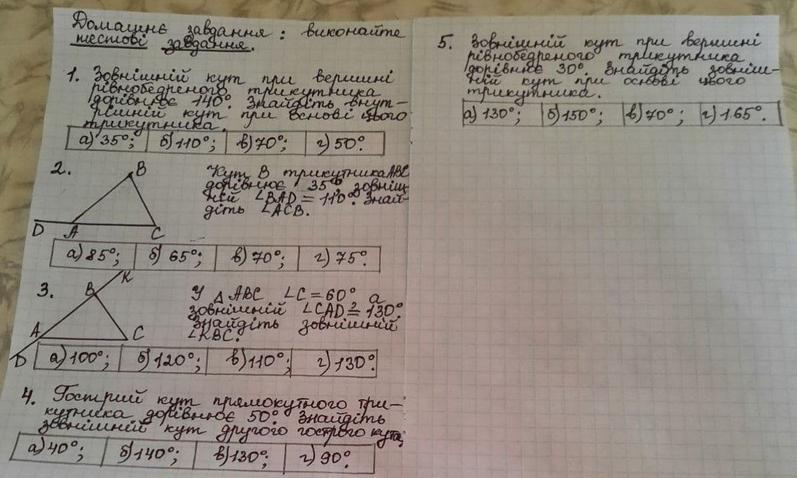 Домашнє завдання: виконайте
тестові завдання.
1. Зовнішній кут при вершині
рівнобедреного трикутника
дорівнює 140°. Знайдіть внут-
рішній кут при основі цього
трикутника.
а) 35°; б) 110°; в) 70°; г) 50°.
2.
B
D A C
Кут В трикутника ABC
дорівнює 35°, зовніш-
ній ∠BAD = 110°. Знай-
діть ∠ACB.
а) 85°; б) 65°; в) 70°; г) 75°.
3.
K
B
A C
D
У △ABC ∠C = 60° а
зовнішній ∠CAD = 130°.
Знайдіть зовнішній
∠KBC.
а) 100°; б) 120°; в) 110°; г) 130°.
4. Гострий кут прямокутного три-
кутника дорівнює 50°. Знайдіть
зовнішній кут другого гострого кута.
а) 40°; б) 140°; в) 130°; г) 90°.
5. Зовнішній кут при вершині
рівнобедреного трикутника
дорівнює 30°. Знайдіть зовніш-
ній кут при основі цього
трикутника.
а) 130°; б) 150°; в) 70°; г) 165°.